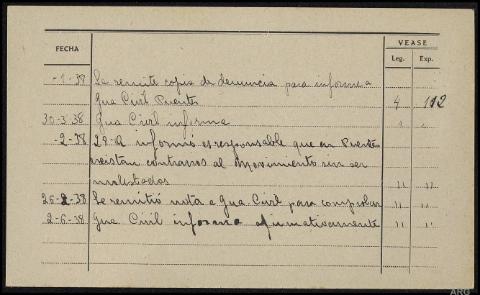 FECHA
VEASE
Leg. Exp.
-1-38 Se remite copia de denuncia para informe a
Gua Civil Puente 4 112
30-3-38 Gua Civil informa " "
-2-38 29-R informó es responsable que en Puente
existan contrarios al Movimiento sin ser
molestados " "
26-2-38 Se remitió nota a Gua. Civil para comprobar " "
2-6-38 Gua Civil informa afirmativamente " "
ARG